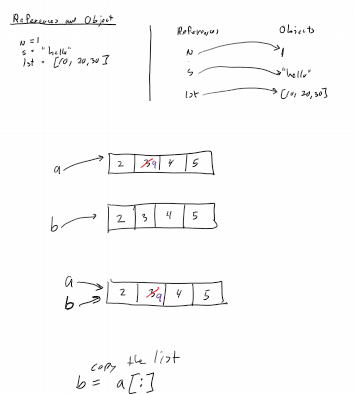 References and Object
N = 1
s = "hello"
lst = [10, 20, 30]
References Objects
N 1
s "hello"
lst [10, 20, 30]
a 2 3 9 4 5
b 2 3 4 5
a
b 2 3 9 4 5
copy the list
b = a[:]